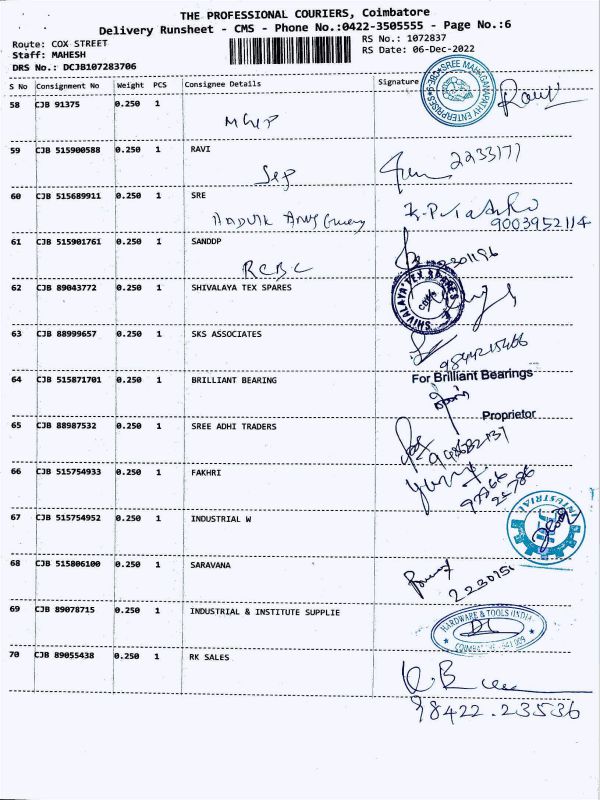 THE PROFESSIONAL COURIERS, Coimbatore
Delivery Runsheet - CMS - Phone No.:0422-3505555 - Page No.:6
Route: COX STREET
Staff: MAHESH
DRS No.: DCJB107283706
RS No.: 1072837
RS Date: 06-Dec-2022
S No Consignment No Weight PCS Consignee Details Signature
58 CJB 91375 0.250 1
SREE MAHAGANAPATHY ENTERPRISES
59 CJB 515900588 0.250 1 RAVI
2233177
60 CJB 515689911 0.250 1 SRE
9003952114
61 CJB 515901761 0.250 1 SANDDP
RCBC
62 CJB 89043772 0.250 1 SHIVALAYA TEX SPARES
SHIVALAYA TEX SPARES CBE
63 CJB 88999657 0.250 1 SKS ASSOCIATES
64 CJB 515871701 0.250 1 BRILLIANT BEARING
For Brilliant Bearings
Proprietor
65 CJB 88987532 0.250 1 SREE ADHI TRADERS
66 CJB 515754933 0.250 1 FAKHRI
67 CJB 515754952 0.250 1 INDUSTRIAL W
INDUSTRIAL
68 CJB 515806100 0.250 1 SARAVANA
69 CJB 89078715 0.250 1 INDUSTRIAL & INSTITUTE SUPPLIE
HARDWARE & TOOLS (INDIA)
COIMBATORE - 641 009
70 CJB 89055438 0.250 1 RK SALES
98422.23536